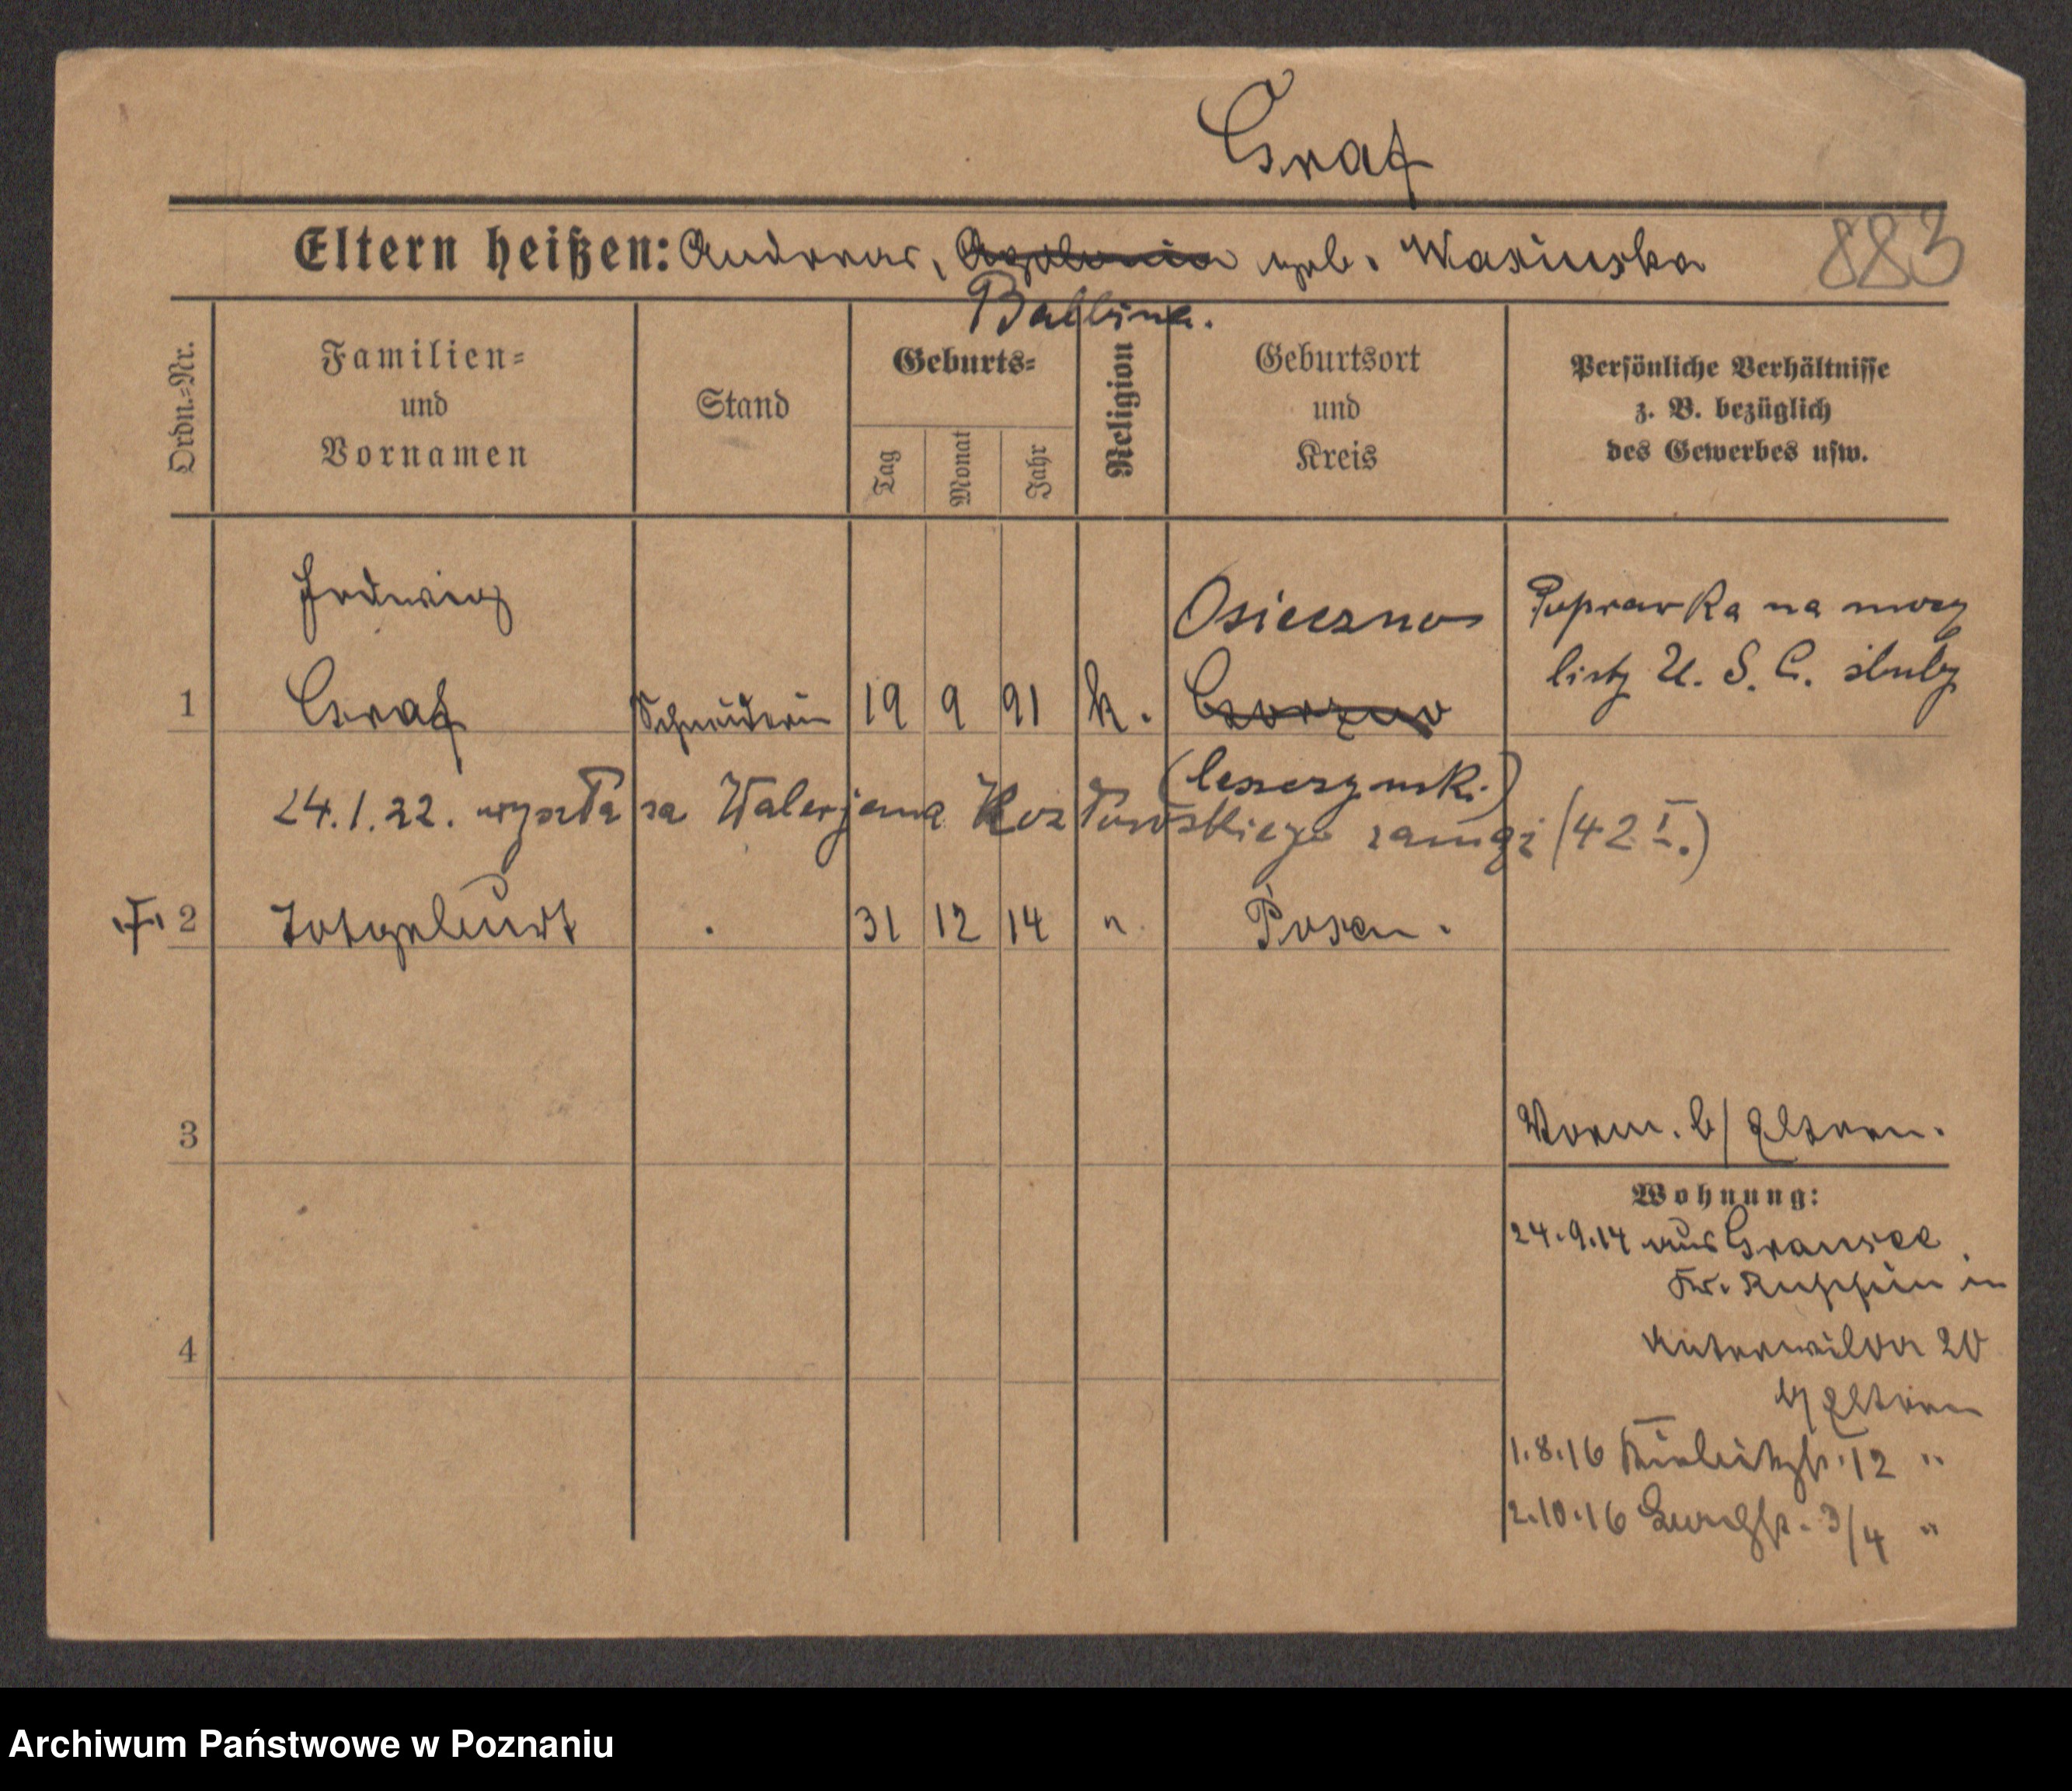 Graf
Eltern heißen: Andreas, Apolonia geb. Wasinska
883
Balbina.
Ordn.=Nr.
Familien=
und
Vornamen
Stand
Geburts=
Tag
Monat
Jahr
Religion
Geburtsort
und
Kreis
Persönliche Verhältnisse
z. B. bezüglich
des Gewerbes usw.
Hedwig
Osieczno
Poprawka na mocy
listy U. S. C. śluby
1 Graf Schneiderin 19 9 91 k. Gorzno
(leszczynski)
24.1.22. wyszła za Walerjana Kozłowskiego zamąż (42 I.)
2 Totgeburt . 31 12 14 " Posen.
3
Vorm. b/ Eltern.
Wohnung:
24.9.14 aus Gransee
Kr. Ruppin in
4
Unterwilda 20
b/ Eltern
1.8.16 12 "
2.10.16 3/4 "
Archiwum Państwowe w Poznaniu